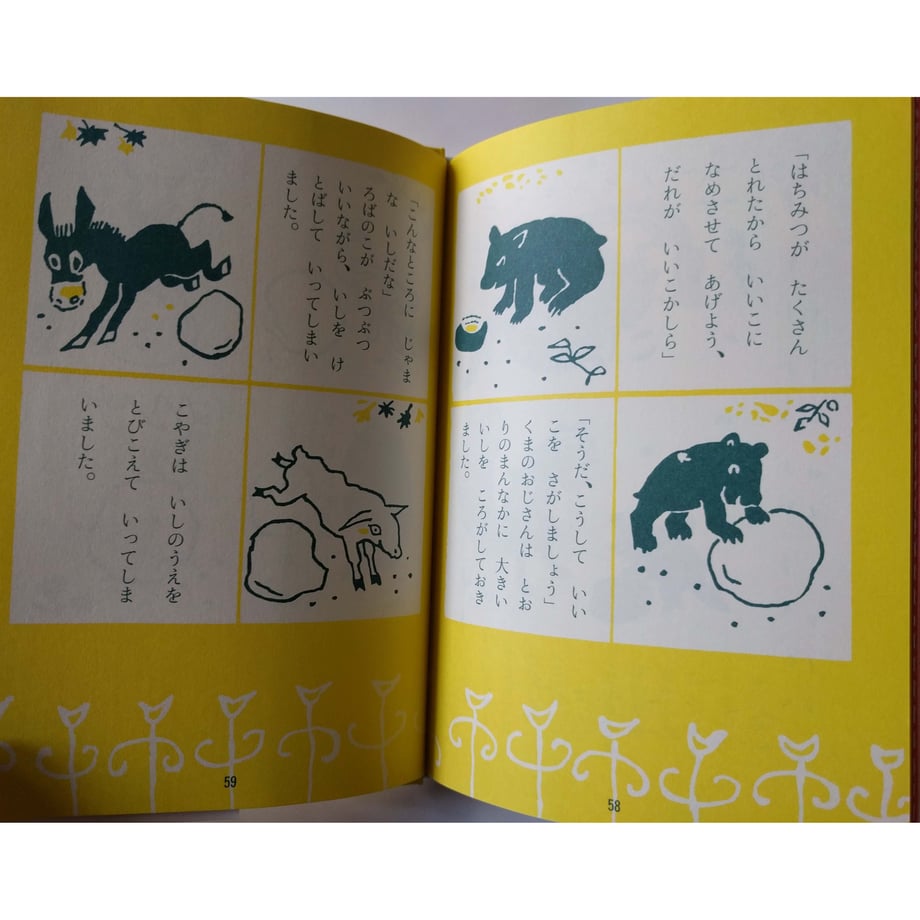 「はちみつが　たくさん
とれたから　いいこに
なめさせて　あげよう、
だれが　いいこかしら」
「そうだ、こうして　いい
こを　さがしましょう」
くまのおじさんは　とお
りのまんなかに　大きい
いしを　ころがしておき
ました。
58
「こんなところに　じゃま
な　いしだな」
ろばのこが　ぶつぶつ
いいながら、いしを　け
とばして　いってしまい
ました。
こやぎは　いしのうえを
とびこえて　いってしま
いました。
59